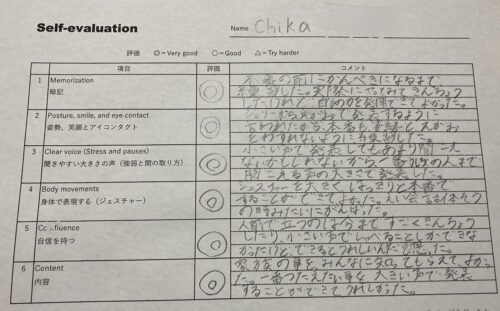 Self-evaluation
Name Chika
評価 ◎=Very good ○=Good △=Try harder
項目 評価 コメント
1 Memorization
暗記
◎
本番の前にかんぺきになるまで
練習した。実際にやってみてきんちょう
したけれど、自分の力を発揮できてよかった。
2 Posture, smile, and eye contact
姿勢、笑顔とアイコンタクト
◎
から笑がおで発表するように
言われたから、本番も えがお
をわすれないように
3 Clear voice (Stress and pauses)
聞きやすい大きさの声（強弱と間の取り方）
◎
小さい声で発表してもあまり聞こえ
ないかもしれないから一番 の人まで
聞こえる声の大きさで発表した。
4 Body movements
身体で表現する（ジェスチャー）
◎
ジェスチャーを大きくはっきりと本番で
することができてよかった。
の時みたいにがんばった。
5 Confluence
自信を持つ
◎
人前で立つのは今まですごくきんちょう
したり、小さい声でしゃべることしかできな
かったけど、できるとうれしいんだと思った。
6 Content
内容
◎
家族の事をみんなに知ってもらえてよかっ
た。一番つたえたい事を大きい声で発表
することができてうれしかった。